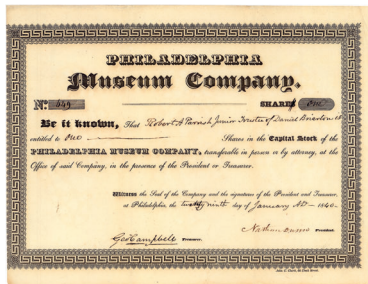 PHILADELPHIA
Museum Company.
No. 449 SHARES One
Be it known, That Robert A Parrish Junior Trustee of Daniel is
entitled to One Shares in the Capital Stock of the
PHILADELPHIA MUSEUM COMPANY, transferable in person or by attorney, at the
Office of said Company, in the presence of the President or Treasurer.
Witness the Seal of the Company and the signatures of the President and Treasurer,
at Philadelphia, the twenty ninth day of January AD 1840.
President.
Geo Campbell Treasurer.